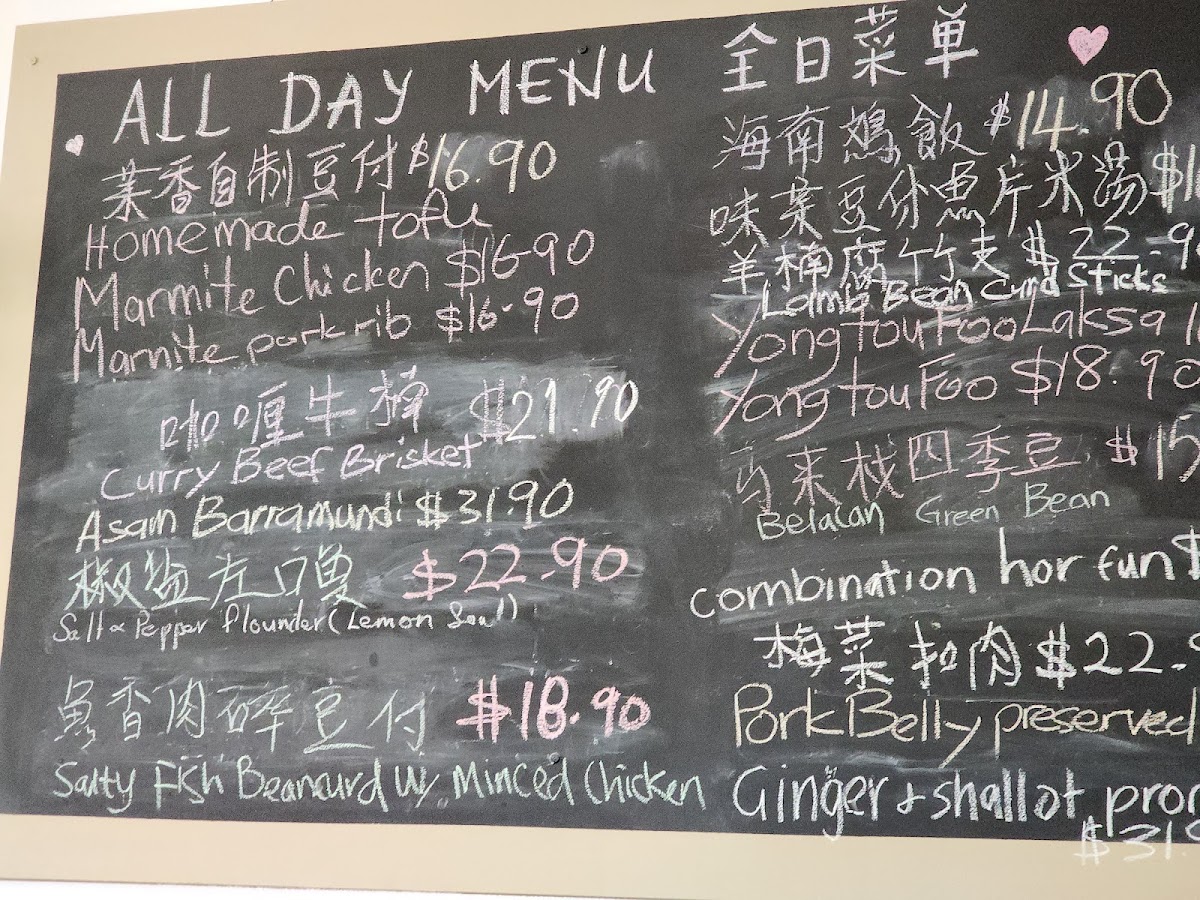 ALL DAY MENU
茉香自制豆付 $16.90
Homemade tofu
Marmite Chicken $16-90
Marmite pork rib $16-90
咖喱牛楠 $21.90
Curry Beef Brisket
Asam Barramundi $31.90
椒盐左口 $22-90
Salt & Pepper flounder (Lemon
魚香肉碎豆付 $18.90
Salty Fish Beancurd W/ Minced Chicken
全日菜单
海南鸡飯 $14.90
味菜豆付魚片米湯 $1
羊楠腐竹 $22-9
Lamb Bean Curd Sticks
Yong tou Foo Laksa 1
Yong tou Foo $18.90
马来栈四季豆 $15
Belacan Green Bean
combination hor fun $
梅菜扣肉 $22.9
Pork Belly preserved
Ginger + shallot
$31.9